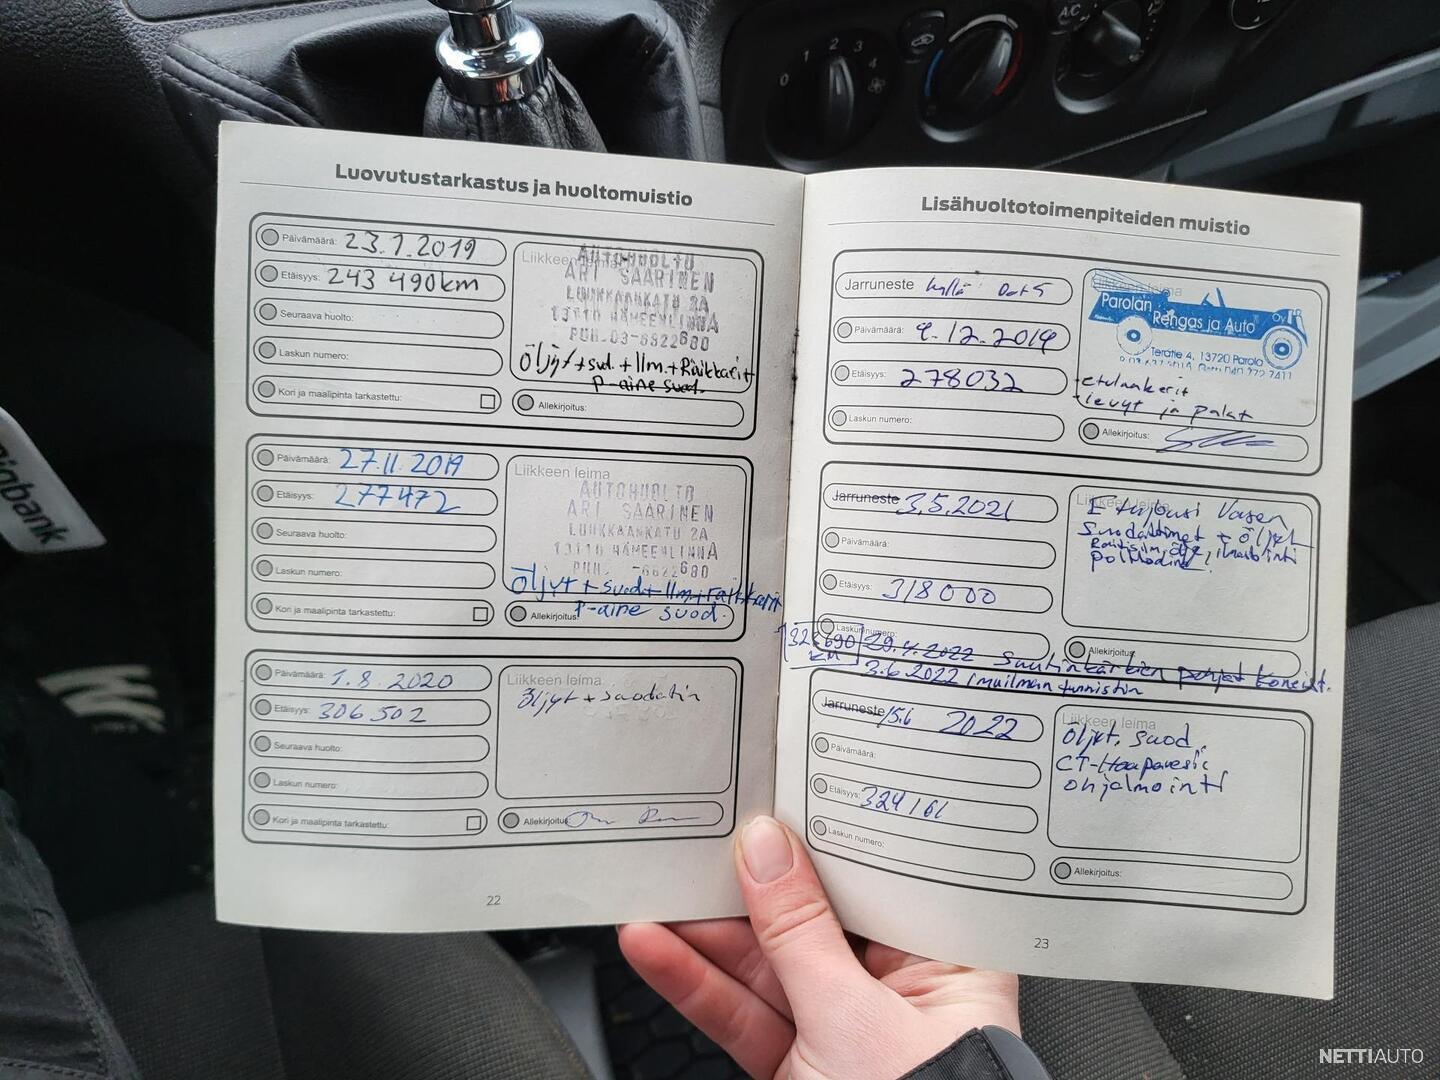 Luovutustarkastus ja huoltomuistio
Päivämäärä: 23.1.2019
Etäisyys: 243 490km
Seuraava huolto:
Laskun numero:
Kori ja maalipinta tarkastettu:
Liikkeen leima
AUTOHUOLTO
ARI SAARINEN
LUUKKAANKATU 2A
13110 HÄMEENLINNA
PUH.03-6822680
Öljyt + suod. + Ilm. + Räikkärit
P-aine suod.
Allekirjoitus:
Päivämäärä: 27.11.2019
Etäisyys: 277472
Seuraava huolto:
Laskun numero:
Kori ja maalipinta tarkastettu:
Liikkeen leima
AUTOHUOLTO
ARI SAARINEN
LUUKKAANKATU 2A
13110 HÄMEENLINNA
PUH. -6822680
Öljyt + suod + Ilm + räikkärit
P-aine suod.
Allekirjoitus:
Päivämäärä: 1.8.2020
Etäisyys: 306 502
Seuraava huolto:
Laskun numero:
Kori ja maalipinta tarkastettu:
Liikkeen leima
Öljyt + suodatin
Allekirjoitus:
22
Lisähuoltotoimenpiteiden muistio
Jarruneste kyllä Dot 5
Päivämäärä: 9.12.2019
Etäisyys: 278032
Laskun numero:
Liikkeen leima
Parolan
Rengas ja Auto Oy
Terätie 4, 13720 Parola
-etulaakerit
-levyt ja palat
Allekirjoitus:
Jarruneste 3.5.2021
Päivämäärä:
Etäisyys: 318000
Laskun numero:
Liikkeen leima
Etujousi Vasen
Suodattimet + öljyt
Allekirjoitus:
29.4.2022 Suutinkärkien pohjat koneist.
3.6.2022 Imuilman tunnistin
Jarruneste 15.6 2022
Päivämäärä:
Etäisyys: 324161
Laskun numero:
Liikkeen leima
Öljyt, suod.
ohjelmointi
Allekirjoitus:
23
0 1 2 3 4
A/C
NETTIAUTO